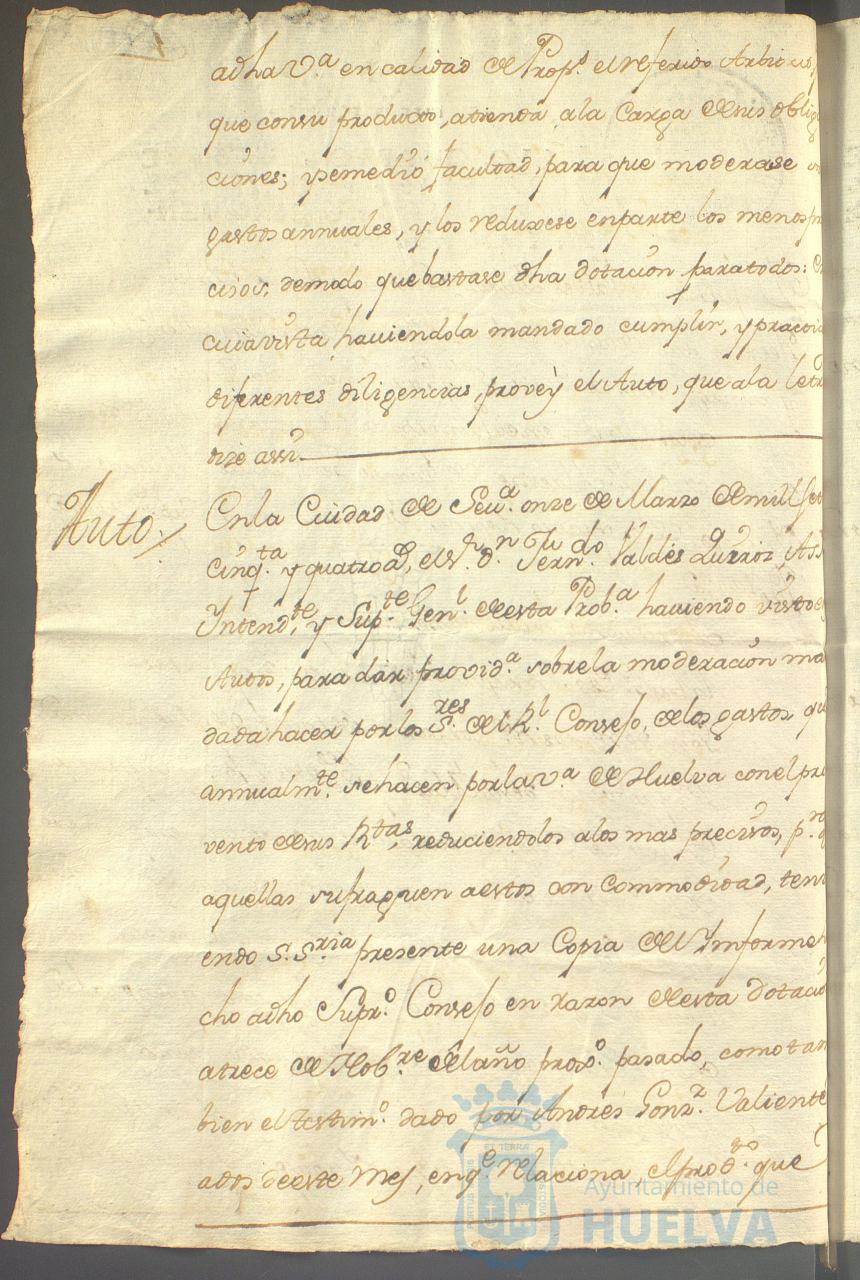 adha V.ª en calidad de Prop.s el referido Arbitrio,
que consu producto, atienda ala Carga desus oblig
ciones; y semedió facultad, para que moderase
gastos annuales, y los reduxese enparte los menos pre
cisos, demodo quebastase dha dotacion paratodos:
cuia vista haviendola mandado cumplir, y practi
diferentes diligencias, proveý el Auto, que ala letr
dize assi
Auto
En la Ciudad de Sevª. onze de Marzo demill Set
cinq.ta y quatro a.s, el S.r D.n Fern.do Valdés Quirós, Ass
Intend.te y Sup.te Gen.l desta Prob.ª haviendo visto e
Autos, para dar provid.ª sobre la moderacion ma
dada hacer por los S.res del R.l Consejo, delos gastos qu
annualm.te sehacen porla V.ª de Huelva con el pro
vento desus R.tas, reduciendolos alos mas precisos, p.ra q
aquellas sufraguen aestos con Commodidad, teni
endo S. S.ria presente una Copia del Informe
cho adho Supr.º Consejo en razon desta dotacio
atrece de Nob.re del año prox.º pasado, como tam
bien el testim.º dado por Andres Gonz.z Valiente
ados deeste Mes, enq.e relaciona, el prod.to que
Ayuntamiento de
HUELVA